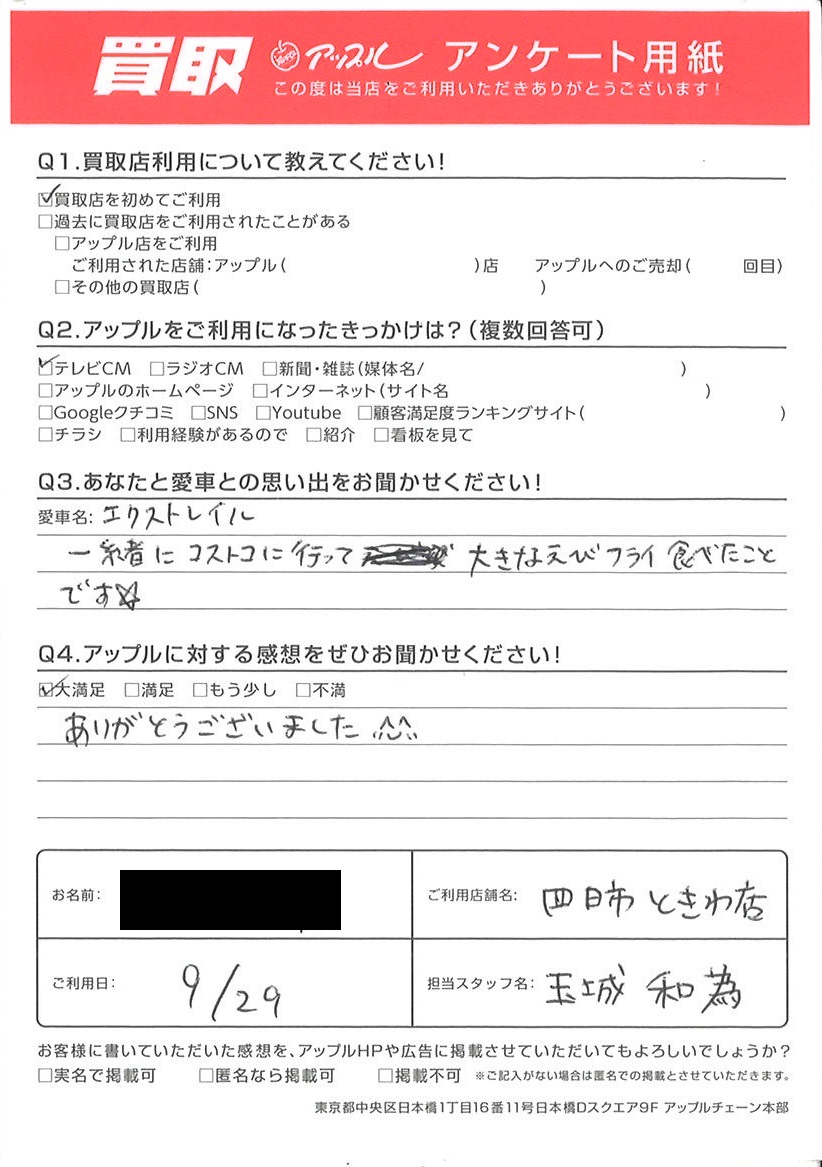 買取 アップル アンケート用紙
この度は当店をご利用いただきありがとうございます!
Q1.買取店利用について教えてください!
☑買取店を初めてご利用
□過去に買取店をご利用されたことがある
□アップル店をご利用
ご利用された店舗:アップル( )店 アップルへのご売却( 回目)
□その他の買取店( )
Q2.アップルをご利用になったきっかけは?(複数回答可)
☑テレビCM □ラジオCM □新聞・雑誌(媒体名/ )
□アップルのホームページ □インターネット(サイト名 )
□Googleクチコミ □SNS □Youtube □顧客満足度ランキングサイト( )
□チラシ □利用経験があるので □紹介 □看板を見て
Q3.あなたと愛車との思い出をお聞かせください!
愛車名: エクストレイル
一緒に コストコに行って 大きなえびフライ 食べたこと
です☆
Q4.アップルに対する感想をぜひお聞かせください!
☑大満足 □満足 □もう少し □不満
ありがとうございました ^^
お名前:
ご利用店舗名: 四日市 ときわ店
ご利用日: 9/29
担当スタッフ名: 玉城 和為
お客様に書いていただいた感想を、アップルHPや広告に掲載させていただいてもよろしいでしょうか?
□実名で掲載可 □匿名なら掲載可 □掲載不可 ※ご記入がない場合は匿名での掲載とさせていただきます。
東京都中央区日本橋1丁目16番11号日本橋Dスクエア9F アップルチェーン本部